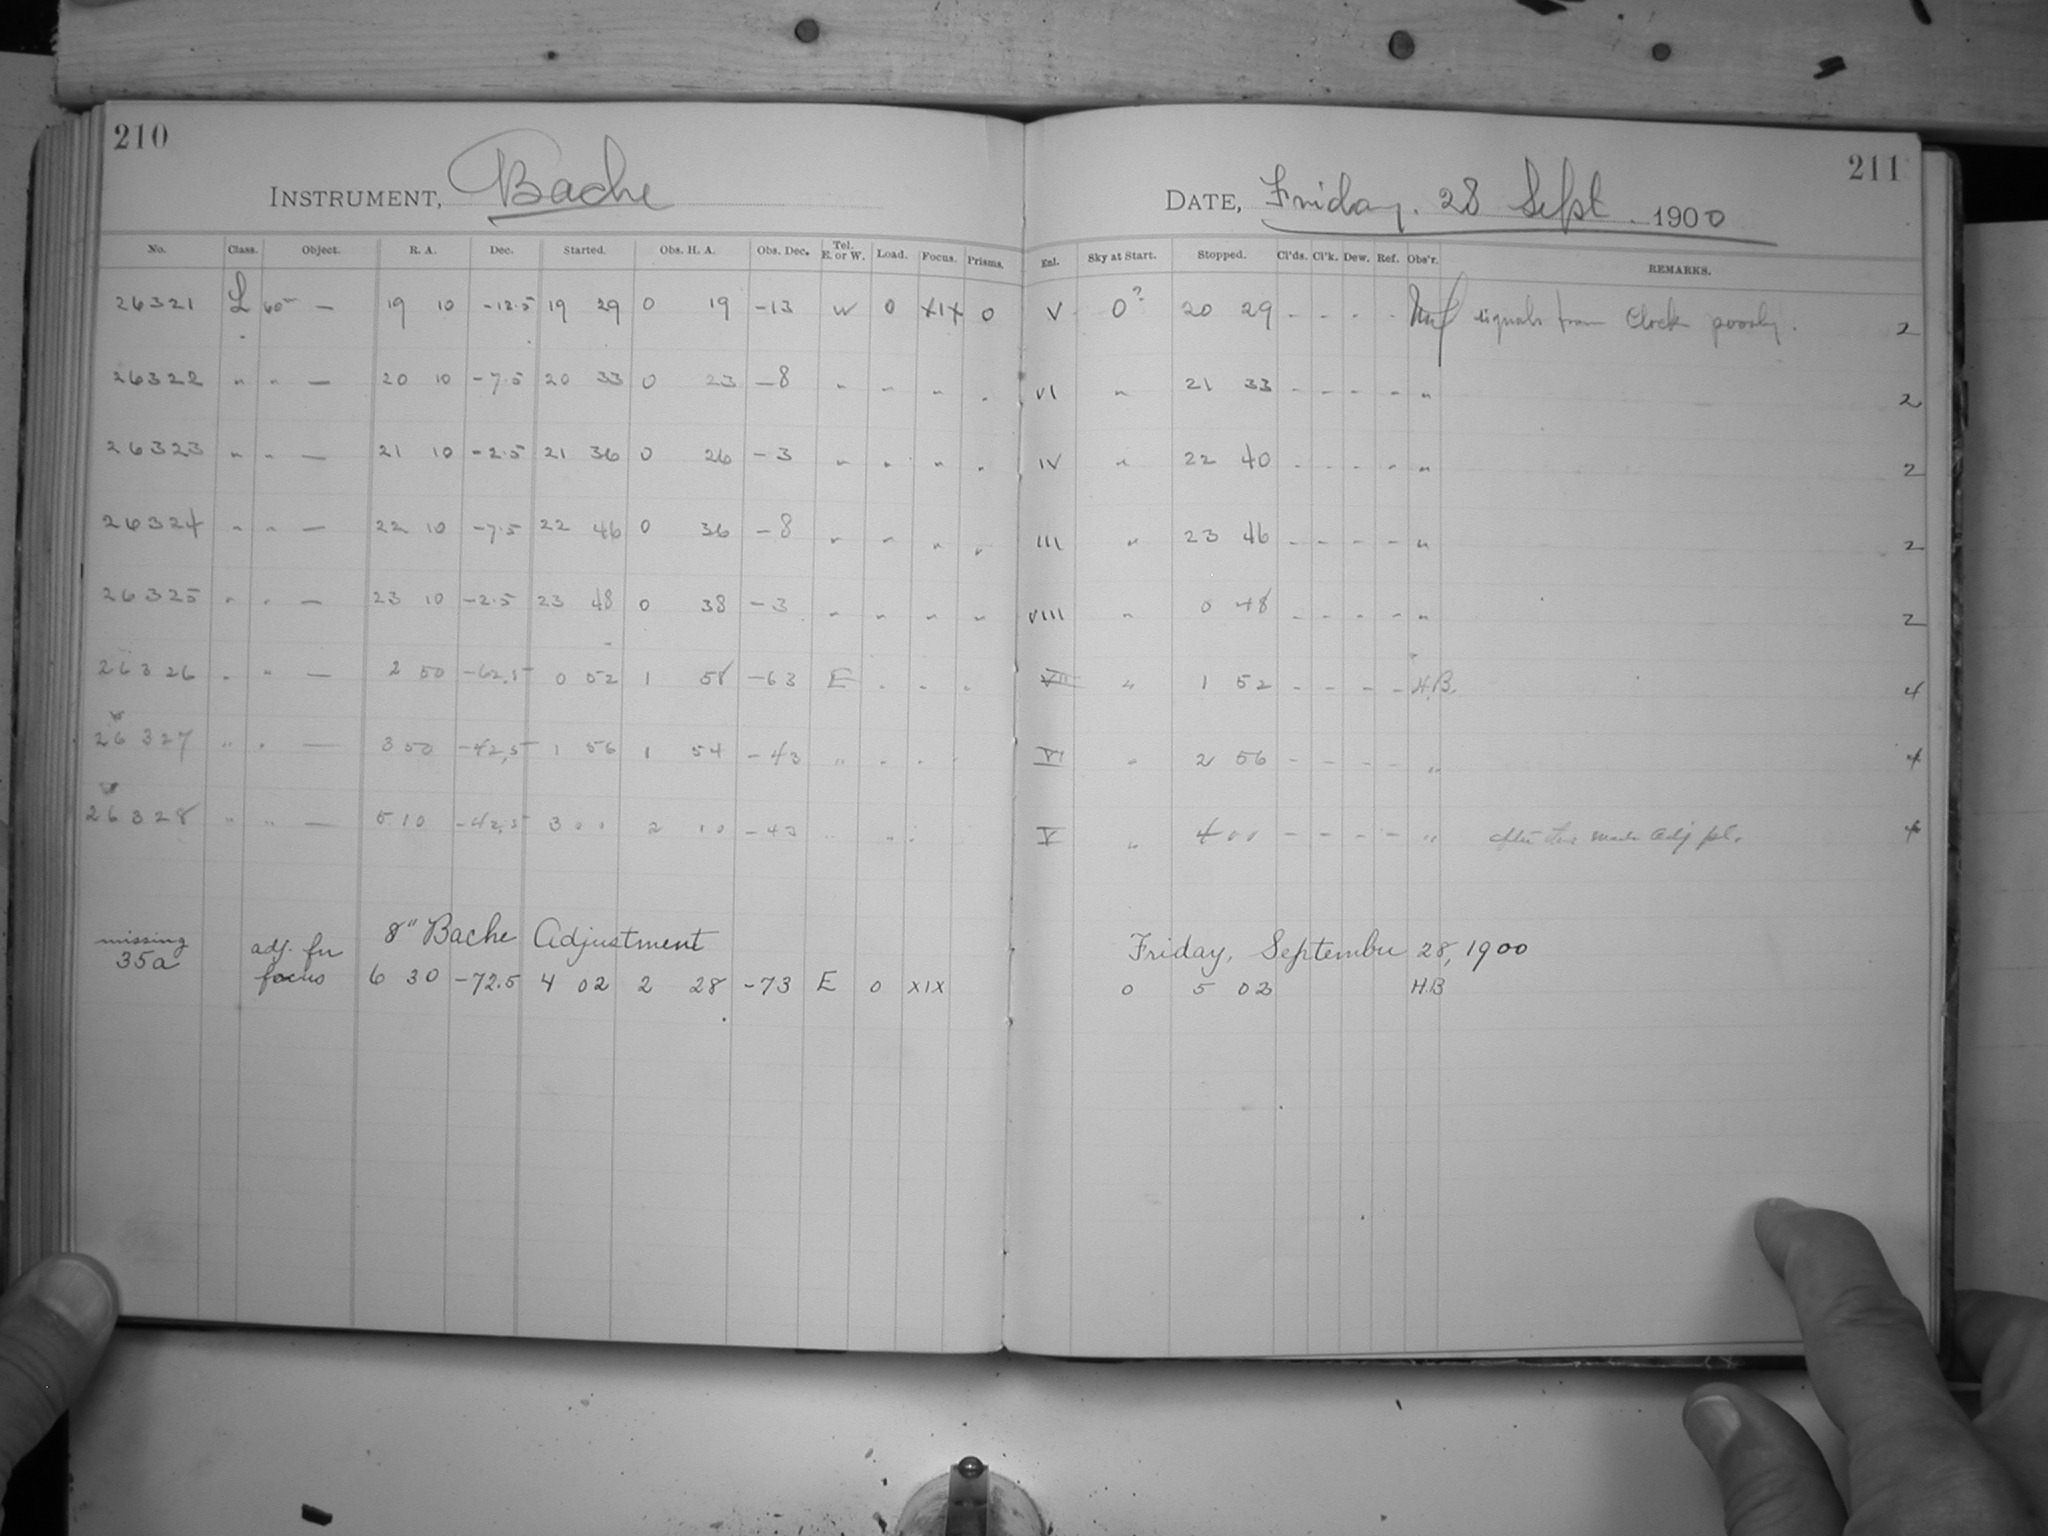 210
INSTRUMENT, Bache
No. Class. Object. R. A. Dec. Started. Obs. H. A. Obs. Dec. Tel. E. or W. Load. Focus. Prisms.
26321 L 60m — 19 10 -12.5 19 29 0 19 -13 W 0 XIX 0
26322 " " — 20 10 -7.5 20 33 0 23 -8 " " " "
26323 " " — 21 10 -2.5 21 36 0 26 -3 " " " "
26324 " " — 22 10 -7.5 22 46 0 36 -8 " " " "
26325 " " — 23 10 -2.5 23 48 0 38 -3 " " " "
26326 " " — 2 50 -62.5 0 52 1 58 -63 E " " "
26327 " " — 3 50 -42.5 1 56 1 54 -43 " " " "
26328 " " — 5 10 -42.5 3 00 2 10 -43 " " "
8" Bache Adjustment
missing 35a adj. for focus 6 30 -72.5 4 02 2 28 -73 E 0 XIX
211
DATE, Friday. 28 Sept. 1900
Enl. Sky at Start. Stopped. Cl'ds. Cl'k. Dew. Ref. Obs'r. REMARKS.
V 0? 20 29 - - - - signals from Clock poorly. 2
VI " 21 33 - - - - " 2
IV " 22 40 - - - - " 2
III " 23 46 - - - - " 2
VIII " 0 48 - - - - " 2
VII " 1 52 - - - - H.B. 4
VI " 2 56 - - - - " 4
V " 4 00 - - - - " after this made adj pl. 4
Friday, September 28, 1900
0 5 02 H.B